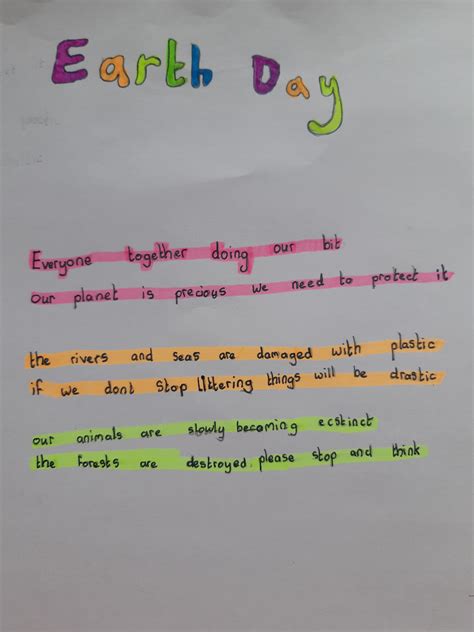 Earth Day
Everyone together doing our bit
our planet is precious we need to protect it
the rivers and seas are damaged with plastic
if we dont stop littering things will be drastic
our animals are slowly becoming ecstinct
the forests are destroyed, please stop and think